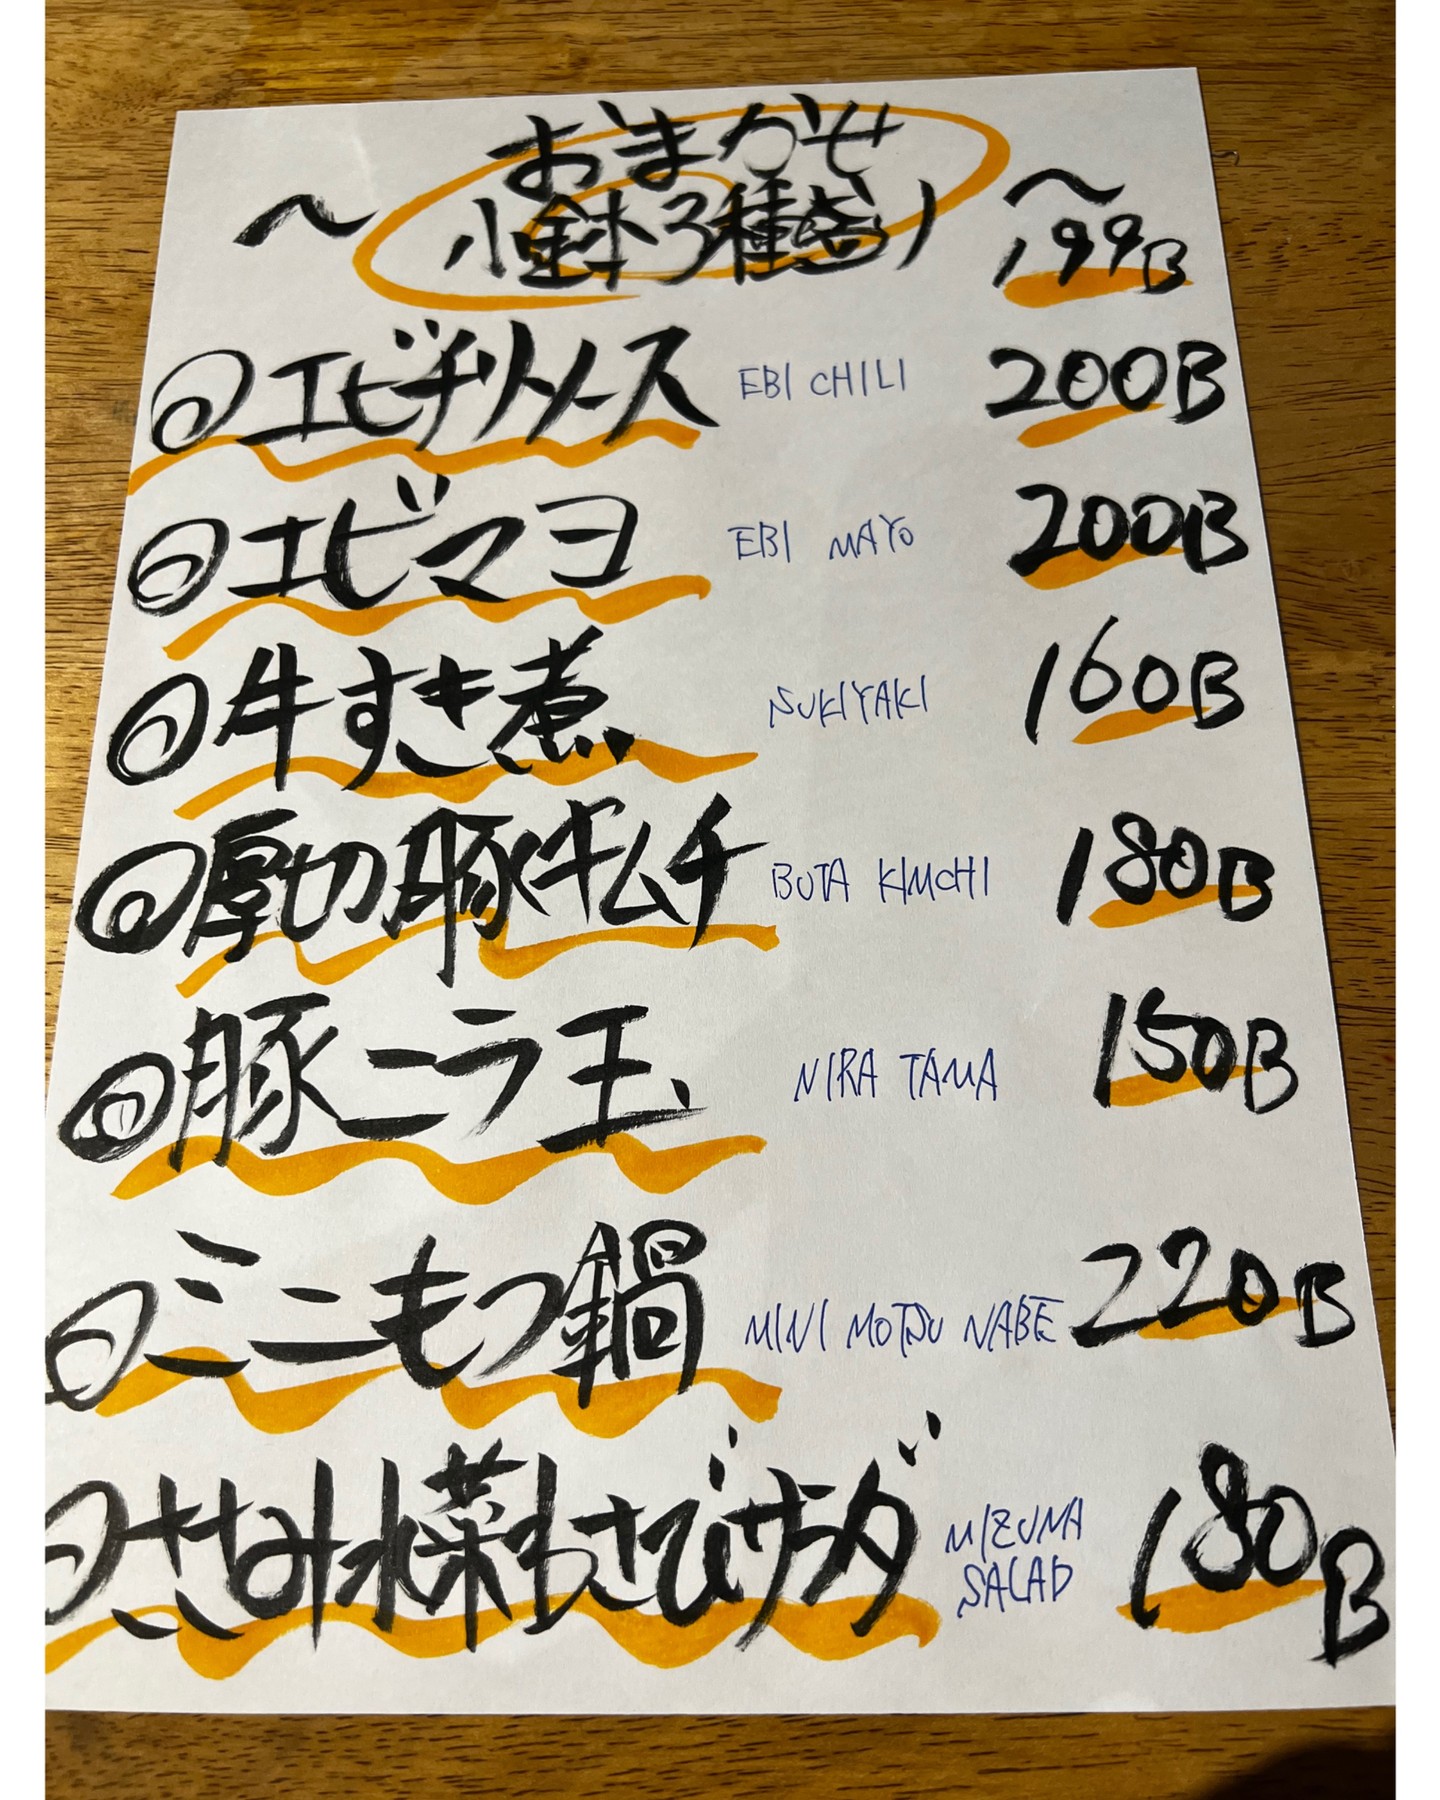 おまかせ
〜 小鉢3種盛り 〜 199B
◎エビチリソース EBI CHILI 200B
◎エビマヨ EBI MAYO 200B
◎牛すき煮 SUKIYAKI 160B
◎厚切豚キムチ BUTA KIMCHI 180B
◎豚ニラ玉 NIRA TAMA 150B
◎ミニもつ鍋 MINI MOTSU NABE 220B
◎ささみ水菜わさびサラダ MIZUMA SALAD 180B